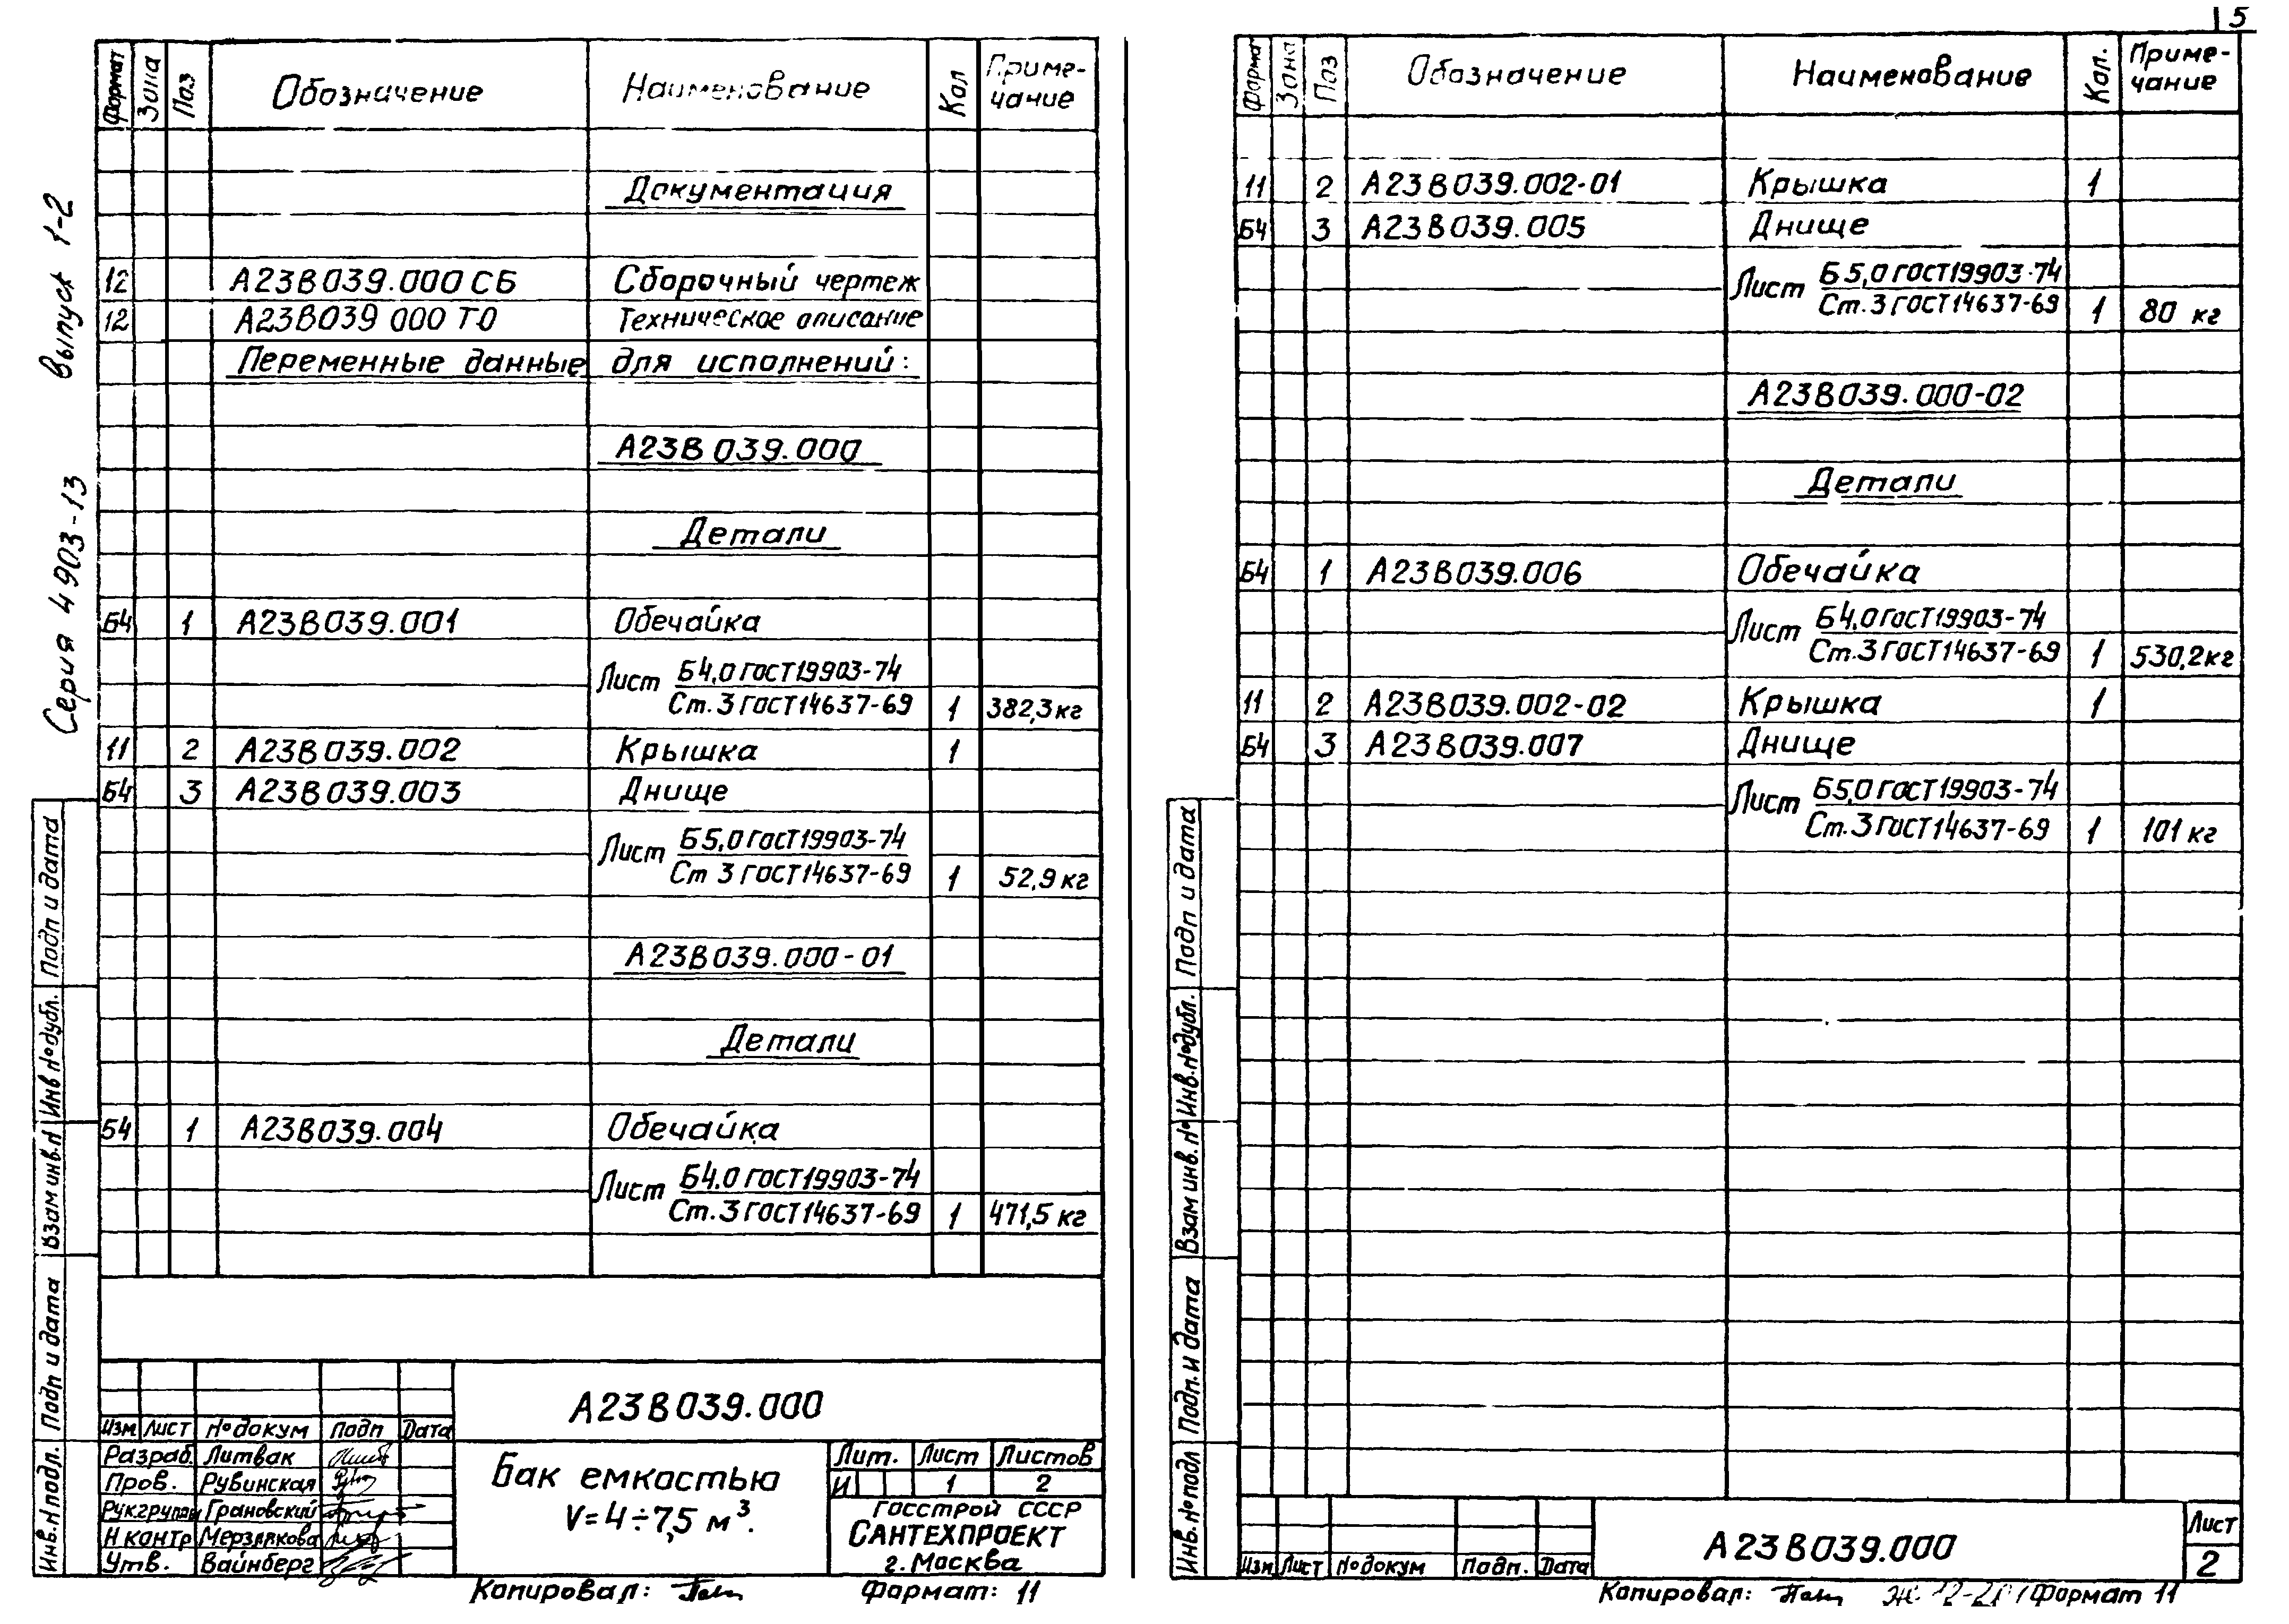 5
Серия 4903-13 выпуск 1-2
Формат Зона Поз Обозначение Наименование Кол Примечание
Документация
12 А23В039.000 СБ Сборочный чертеж
12 А23В039 000 ТО Техническое описание
Переменные данные для исполнений:
А23В039.000
Детали
Б4 1 А23В039.001 Обечайка
Лист Б4,0 ГОСТ19903-74
Ст. 3 ГОСТ14637-69 1 382,3 кг
11 2 А23В039.002 Крышка 1
Б4 3 А23В039.003 Днище
Лист Б5,0 ГОСТ19903-74
Ст 3 ГОСТ14637-69 1 52,9 кг
А23В039.000-01
Детали
Б4 1 А23В039.004 Обечайка
Лист Б4.0 ГОСТ19903-74
Ст. 3 ГОСТ14637-69 1 471,5 кг
Подп и дата
Инв №дубл.
Взам инв.№
Подп и дата
Инв.№подл.
А23В039.000
Изм Лист №докум Подп Дата
Разраб. Литвак
Пров. Рубинская
Рук.группы Грановский
Н контр Мерзлякова
Утв. Вайнберг
Бак емкостью
V=4÷7,5 м³.
Лит. Лист Листов
И 1 2
Госстрой СССР
САНТЕХПРОЕКТ
г. Москва
Копировал: Формат: 11
Формат Зона Поз Обозначение Наименование Кол. Примечание
11 2 А23В039.002-01 Крышка 1
Б4 3 А23В039.005 Днище
Лист Б5,0 ГОСТ19903-74
Ст. 3 ГОСТ14637-69 1 80 кг
А23В039.000-02
Детали
Б4 1 А23В039.006 Обечайка
Лист Б4,0 ГОСТ19903-74
Ст. 3 ГОСТ14637-69 1 530,2 кг
11 2 А23В039.002-02 Крышка 1
Б4 3 А23В039.007 Днище
Лист Б5,0 ГОСТ19903-74
Ст. 3 ГОСТ14637-69 1 101 кг
Подп и дата
Инв.№дубл.
Взам инв.№
Подп. и дата
Инв.№подл
Изм Лист №докум Подп. Дата
А23В039.000
Лист
2
Копировал: Формат 11